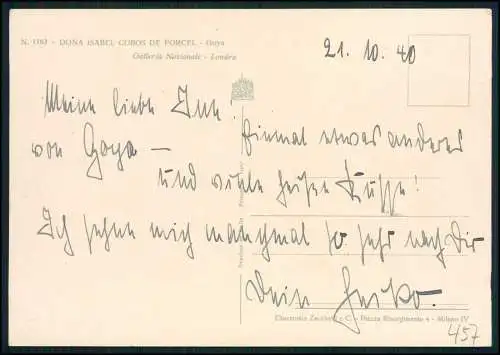 N. 1157 - DONA ISABEL COBOS DE PORCEL - Goya
Galleria Nazionale - Londra
21. 10. 40
Meine liebe
Einmal etwas anderes
von Goya —
und viele heiße Küsse!
Ich sehne mich manchmal so sehr nach Dir
Dein Heiko.
Eliocromia Zacchetti & C. - Piazza Risorgimento 4 - Milano IV
457